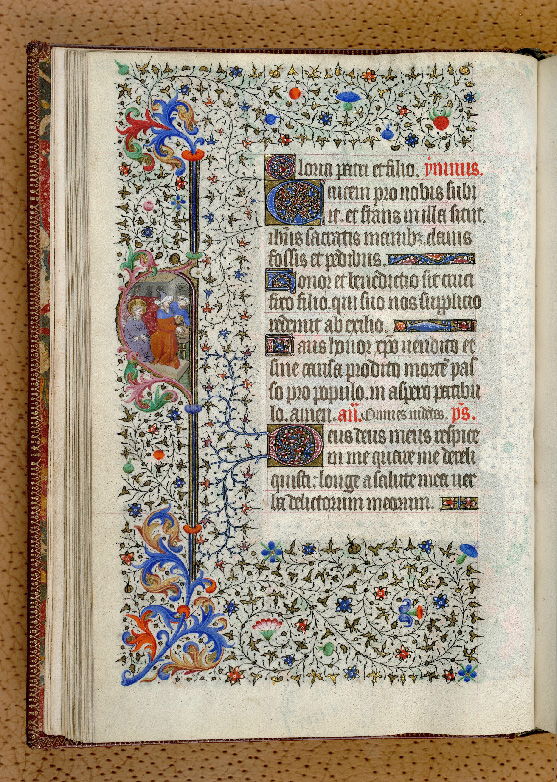 Gloria patri et filio. ymnus.
Qui cem pro nobis subi
it et stans in illa sicut.
ihus sacratis membr. clavis
fossis et pedibus.
Honor et benedictio sit cruci
fixo filio qui suo nos supplicio
redemit ab exilio.
Laus honor xpo vendito et
sine causa prodito morte pas
so pro populo. in aspero patibu
lo. amen. an. Omnes videtes. ps.
Deus deus meus respice
in me quare me dereli
quisti: longe a salute mea ver
ba delictorum meorum.